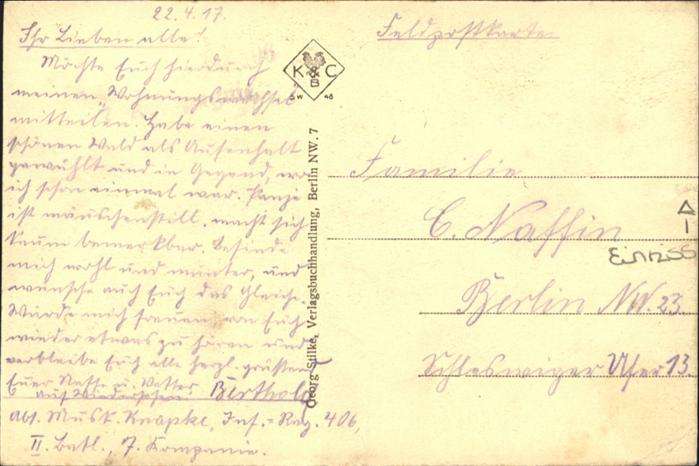 22.4.17.
Ihr Lieben alle!
Möchte Euch hierdurch
meinen "Wohnungswechsel
mitteilen. Habe einen
schönen Wald als Aufenhalt
gewühlt und in Gegend, wo
ich schon einmal war. Panje
ist mäuschenstill, macht sich
kaum bemerkbar. Befinde
mich wohl und munter, und
wünsche auch Euch das Gleiche.
Würde mich freuen von Euch
wieder etwas zu hören und
verbleibe Euch alle herzl. grüssend
Euer Neffe u. Vetter
auf Wiedersehen Berthold
Abs. Musk. Knapke, Inf.-Reg. 406,
II. Batl., 7. Kompanie.
K & C
B
48
Georg Stilke, Verlagsbuchhandlung, Berlin NW. 7
Feldpostkarte
Familie
C. Naffin
Berlin NW. 23.
Schleswiger Ufer 13